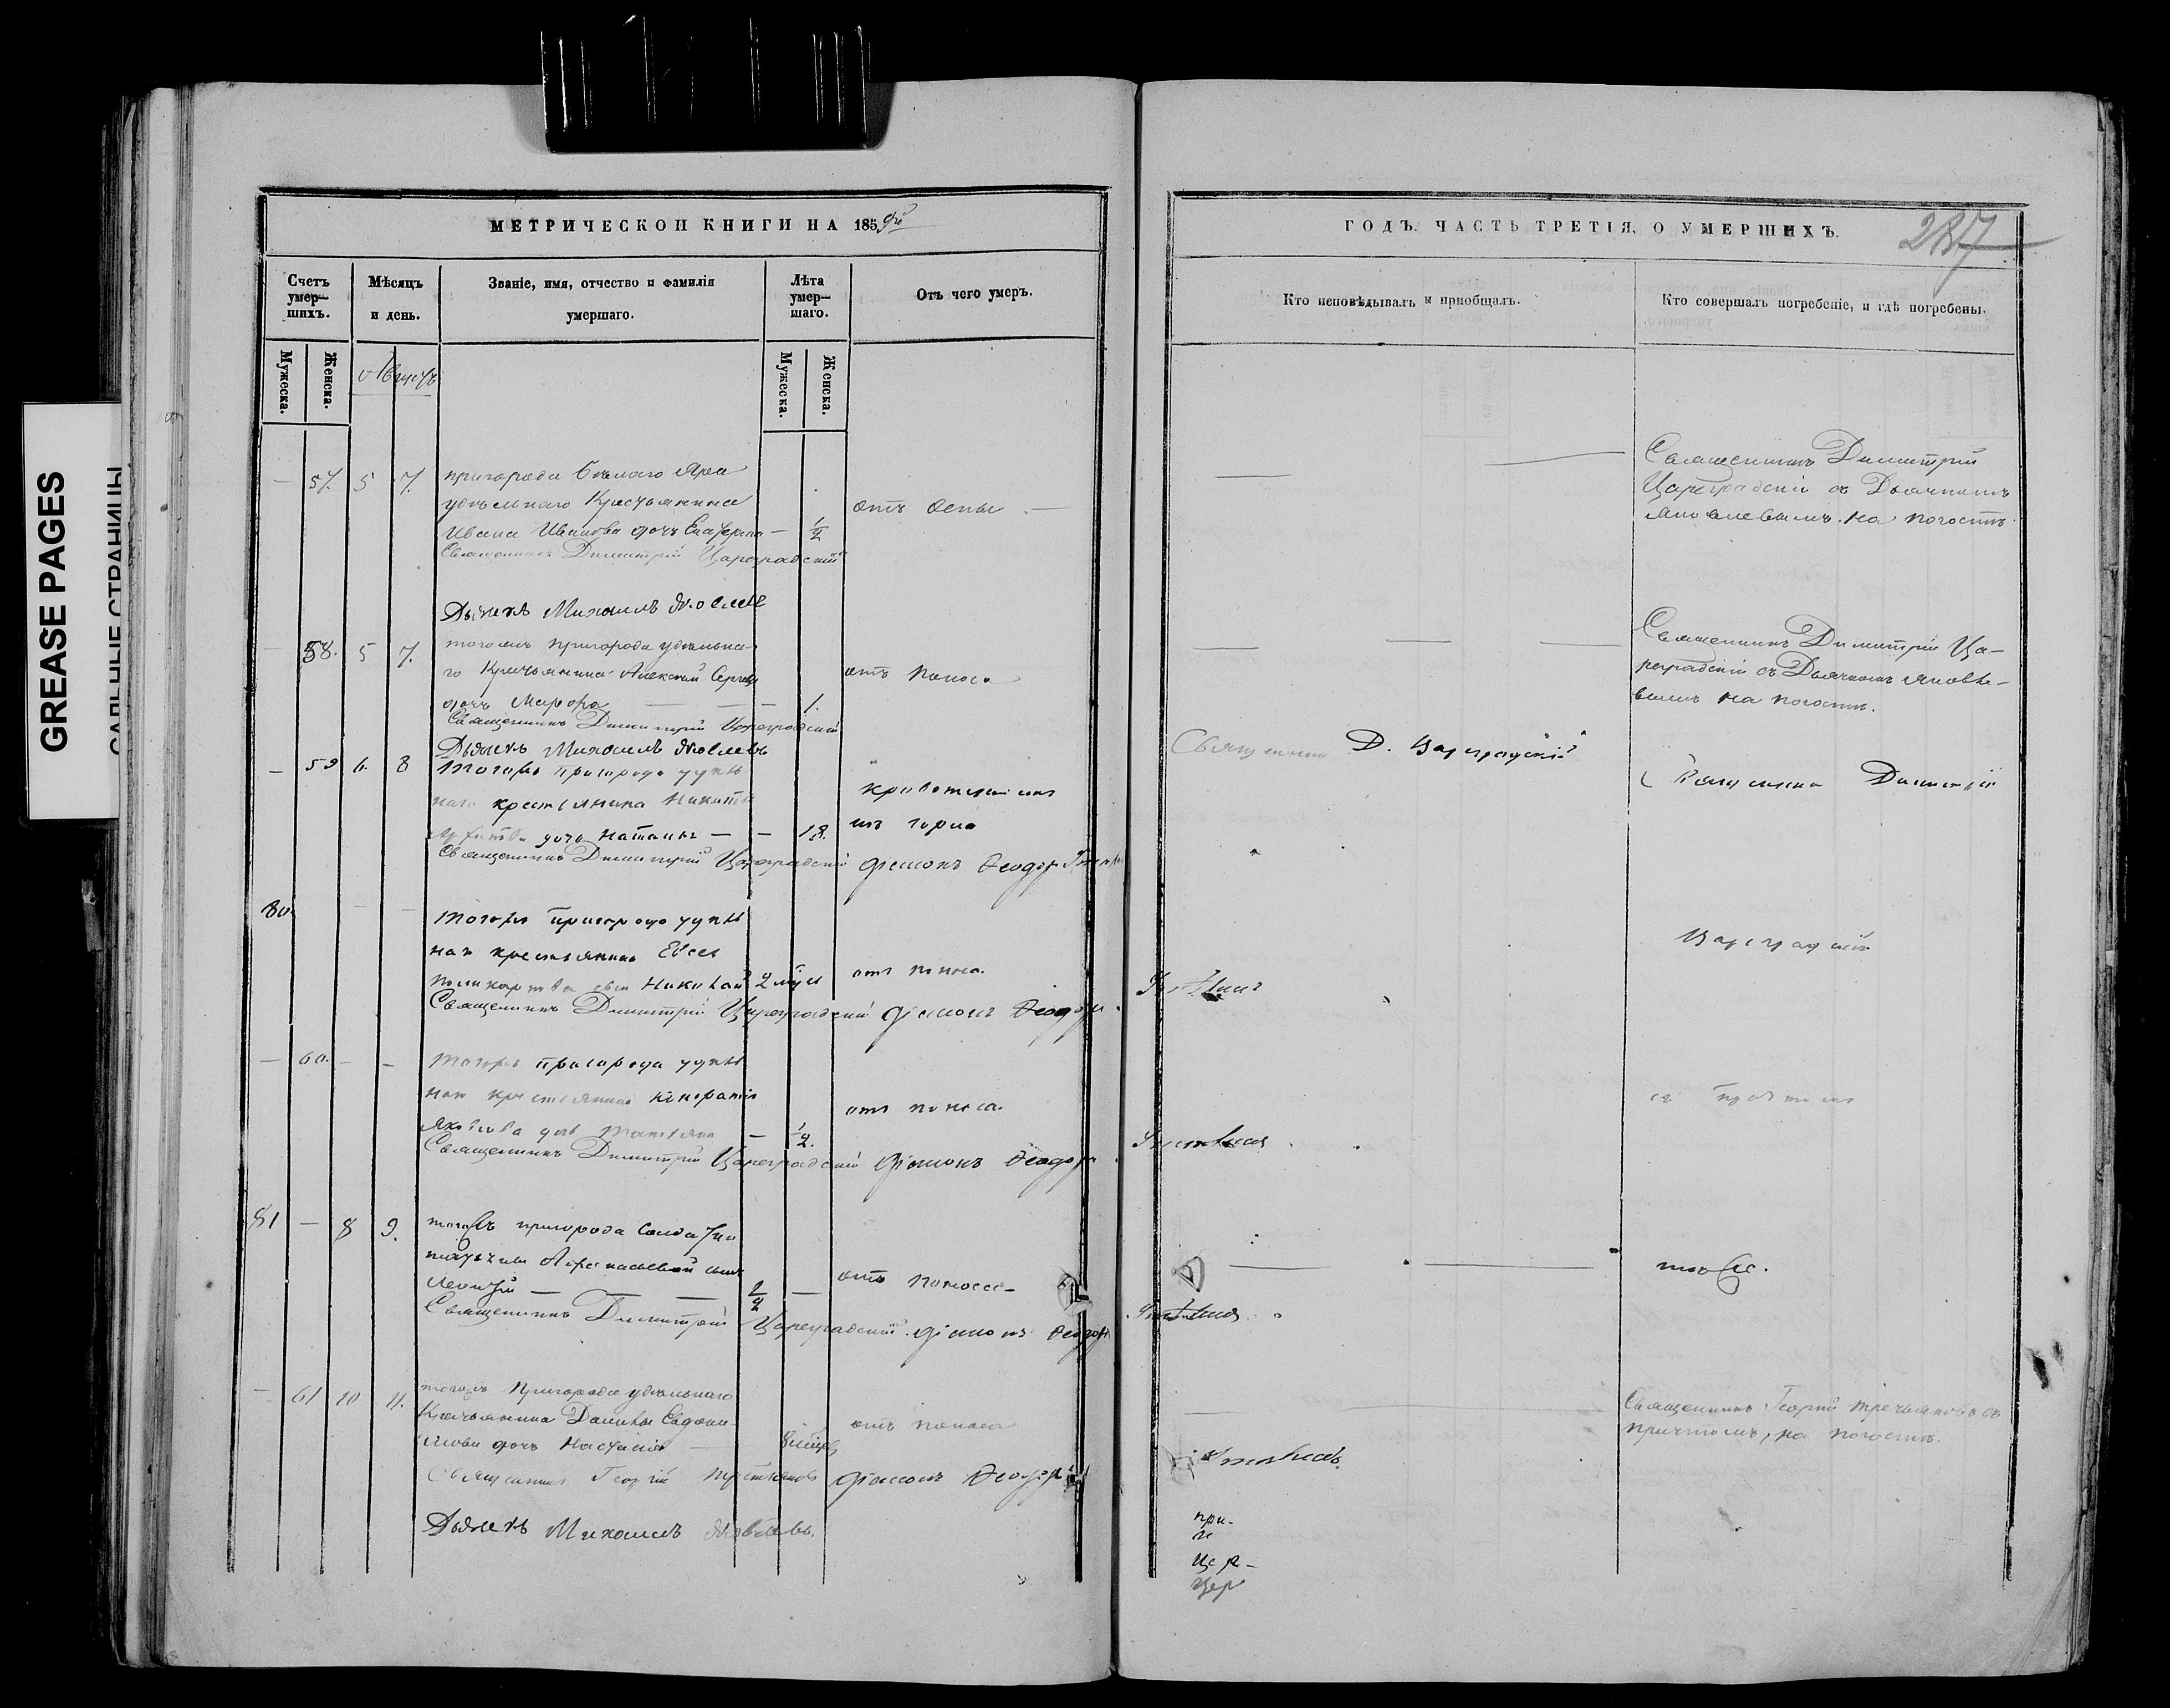 GREASE PAGES
САЛЬНЫЕ СТРАНИЦЫ
МЕТРИЧЕСКОЙ КНИГИ НА 1859й
Счетъ умер-шихъ.
Мѣсяцъ и день.
Званіе, имя, отчество и фамилія умершаго.
Лѣта умер-шаго.
Отъ чего умеръ.
Мужеска.
Женска.
Августъ
Мужеска.
Женска.
— 57. 5 7. пригорода Бѣлаго Яра
удѣльнаго Крестьянина
Ивана Иванова дочь Екатерина — 1/2 отъ оспы —
Священникъ Димитрій Цареградскій
Дьячекъ Михаилъ Яковлевъ
— 58. 5 7. тогожъ пригорода удѣльна-
го Крестьянина Алексѣй Сергѣева
дочь Марѳа — — — 1. отъ поноса
Священникъ Димитрій Цареградскій
Дьячекъ Михаилъ Яковлевъ
— 59 6. 8 Тогожъ пригорода удѣль
наго крестьянина Никиты
дочь Наталья — — 18. изъ горла
Священникъ Димитрій Цареградскій діаконъ Ѳеодоръ
80. — — Тогожъ пригорода удѣль
наго крестьянина Евсея
Поликарпова сынъ Николай 2 мѣс. отъ поноса.
Священникъ Димитрій Цареградскій діаконъ Ѳеодоръ
— 60. — — Тогожъ пригорода удѣль
наго крестьянина
Яковлева дочь Татьяна — 1/2. отъ поноса.
Священникъ Димитрій Цареградскій діаконъ Ѳеодоръ
81 — 8 9. тогожъ пригорода солдатки
Афанасьевой сынъ
Леонтій — — — 1/2 — отъ поноса —
Священникъ Димитрій Цареградскій. діаконъ Ѳеодоръ
— 61 10 11. тогожъ пригорода удѣльнаго
Крестьянина Данилы Евдоки-
мова дочь Настасія — отъ поноса
Священникъ Георгій Третьяковъ діаконъ Ѳеодоръ
Дьячекъ Михаилъ Яковлевъ.
ГОДЪ. ЧАСТЬ ТРЕТІЯ, О УМЕРШИХЪ.
287
Кто исповѣдывалъ и пріобщалъ.
Кто совершалъ погребеніе, и гдѣ погребены.
Священникъ Димитрій
Цареградскій съ Дьячкомъ
Яковлевымъ. На погостѣ.
Священникъ Димитрій Ца-
реградскій съ Дьячкомъ Яковле-
вымъ на погостѣ.
Священникъ Д. Цареградскій
Священникъ Димитрій
Цареградскій
съ причтомъ
тоже.
Священникъ Георгій Третьяковъ съ
причтомъ, на погостѣ.
при-
и
цер-
цер